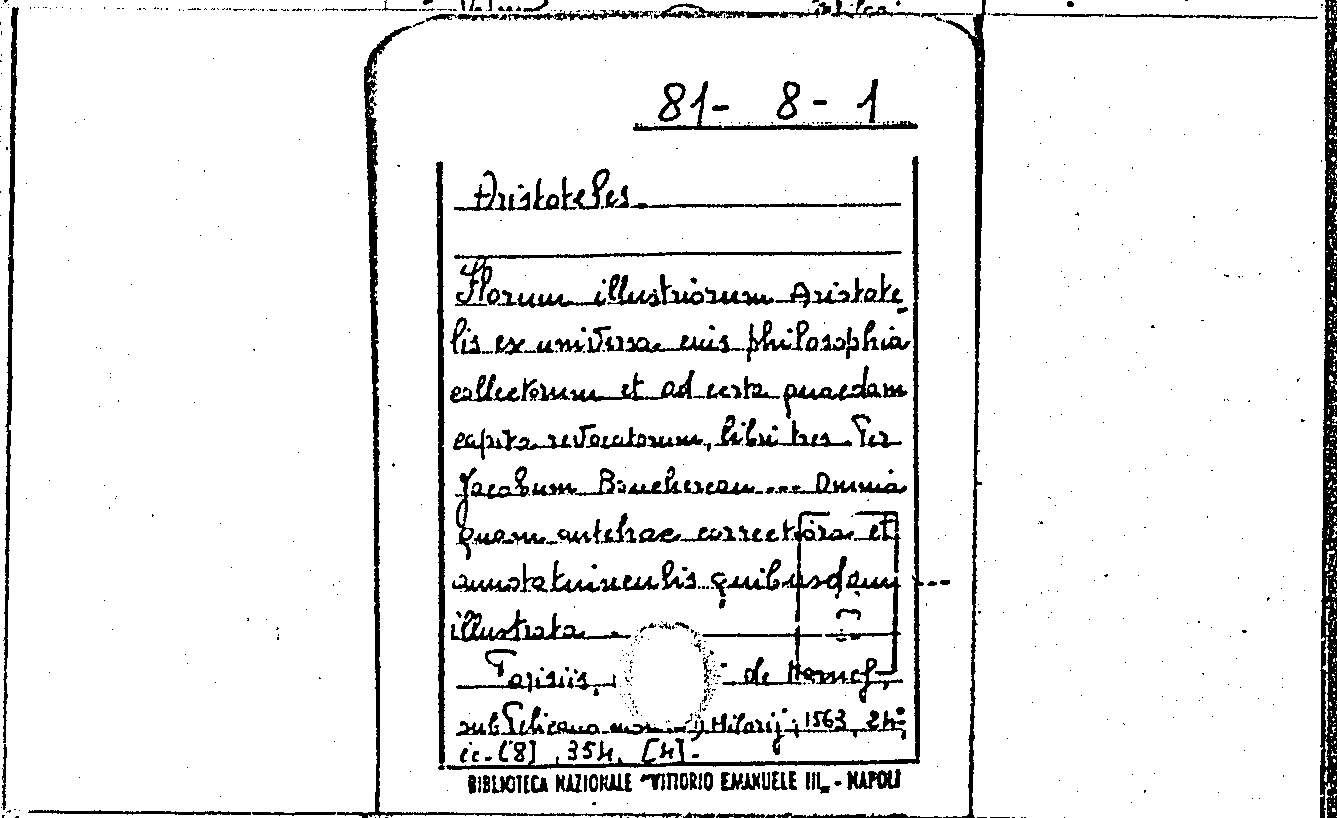 81- 8- 1
Aristoteles
Florum illustriorum Aristote
lis ex universa eius philosophia
collectorum et ad certa quaedam
capita revocatorum, libri tres. Per
Jacobum Bouchereau ... Omnia
quam antehac correctiora et
annotatiunculis quibusdam
illustrata
Parisiis, de Marnef,
sub Pelicano, Hilarij, 1563, 24°
cc. [8], 354, [4].
BIBLIOTECA NAZIONALE "VITTORIO EMANUELE III„ - NAPOLI